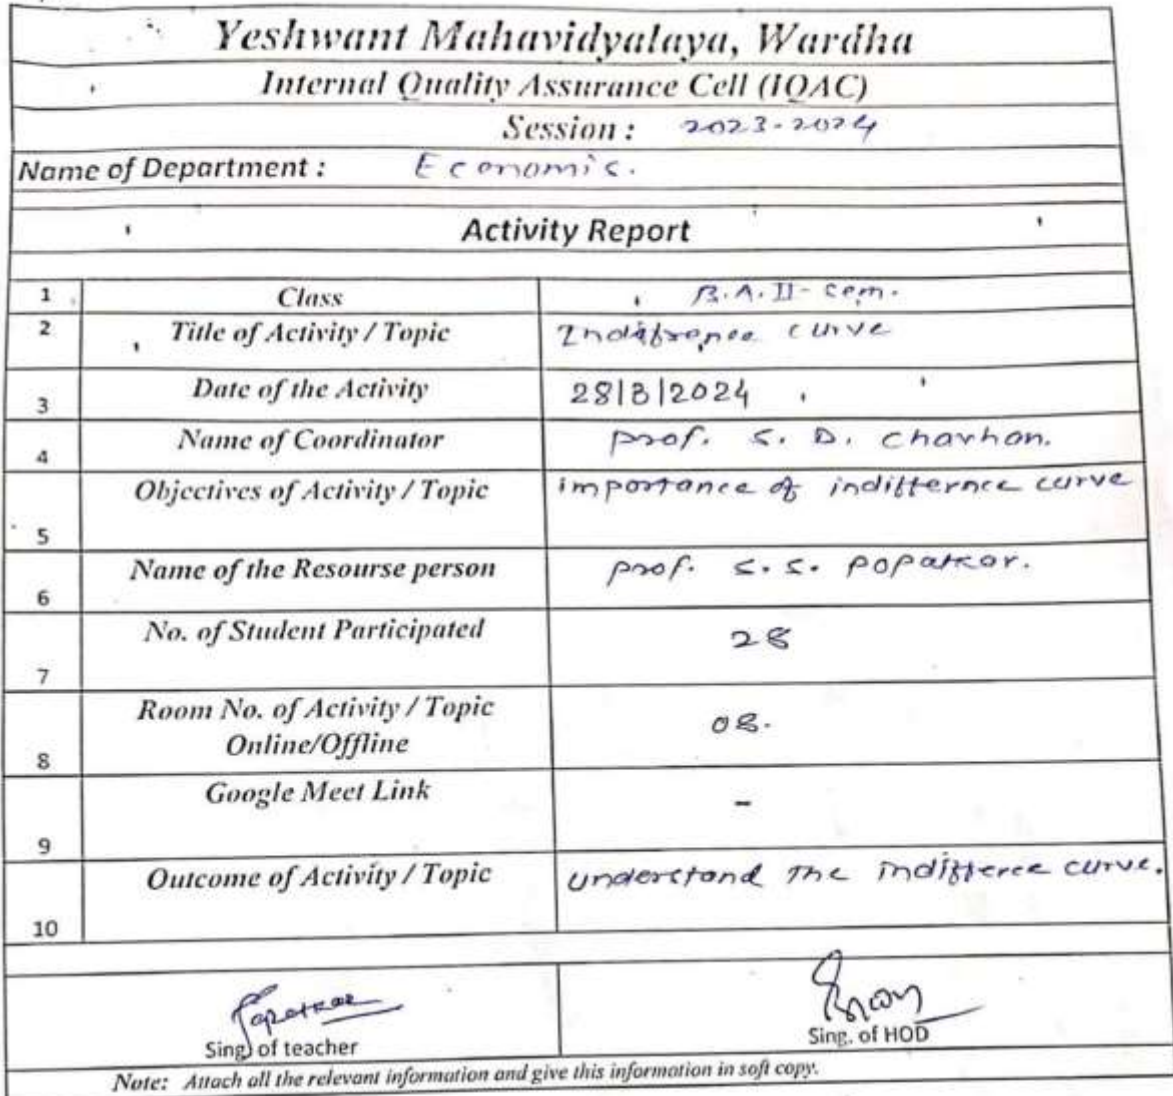 Yeshwant Mahavidyalaya, Wardha
Internal Quality Assurance Cell (IQAC)
Session : 2023-2024
Name of Department : Economic.
Activity Report
1 Class B.A. II - sem.
2 Title of Activity / Topic Indifrance curve
3 Date of the Activity 28/3/2024
4 Name of Coordinator prof. S. D. Chavhan.
5 Objectives of Activity / Topic importance of indiffernce curve
6 Name of the Resourse person prof. S. S. Popatkar.
7 No. of Student Participated 28
8 Room No. of Activity / Topic 08.
Online/Offline
9 Google Meet Link -
10 Outcome of Activity / Topic understand the indifferce curve.
Popatkar
Sing. of teacher Sing. of HOD
Note: Attach all the relevant information and give this information in soft copy.